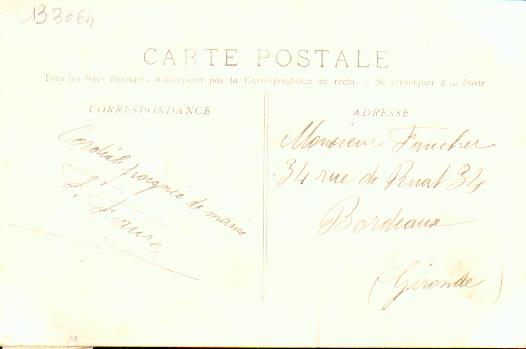 133064
CARTE POSTALE
Tous les Pays étrangers n'acceptent pas la Correspondance au recto. - Se renseigner à la Poste
CORRESPONDANCE
Cordiale poignée de mains
F. Faure
ADRESSE
Monsieur Faucher
34 rue de Ruat 34
Bordeaux
(Gironde)